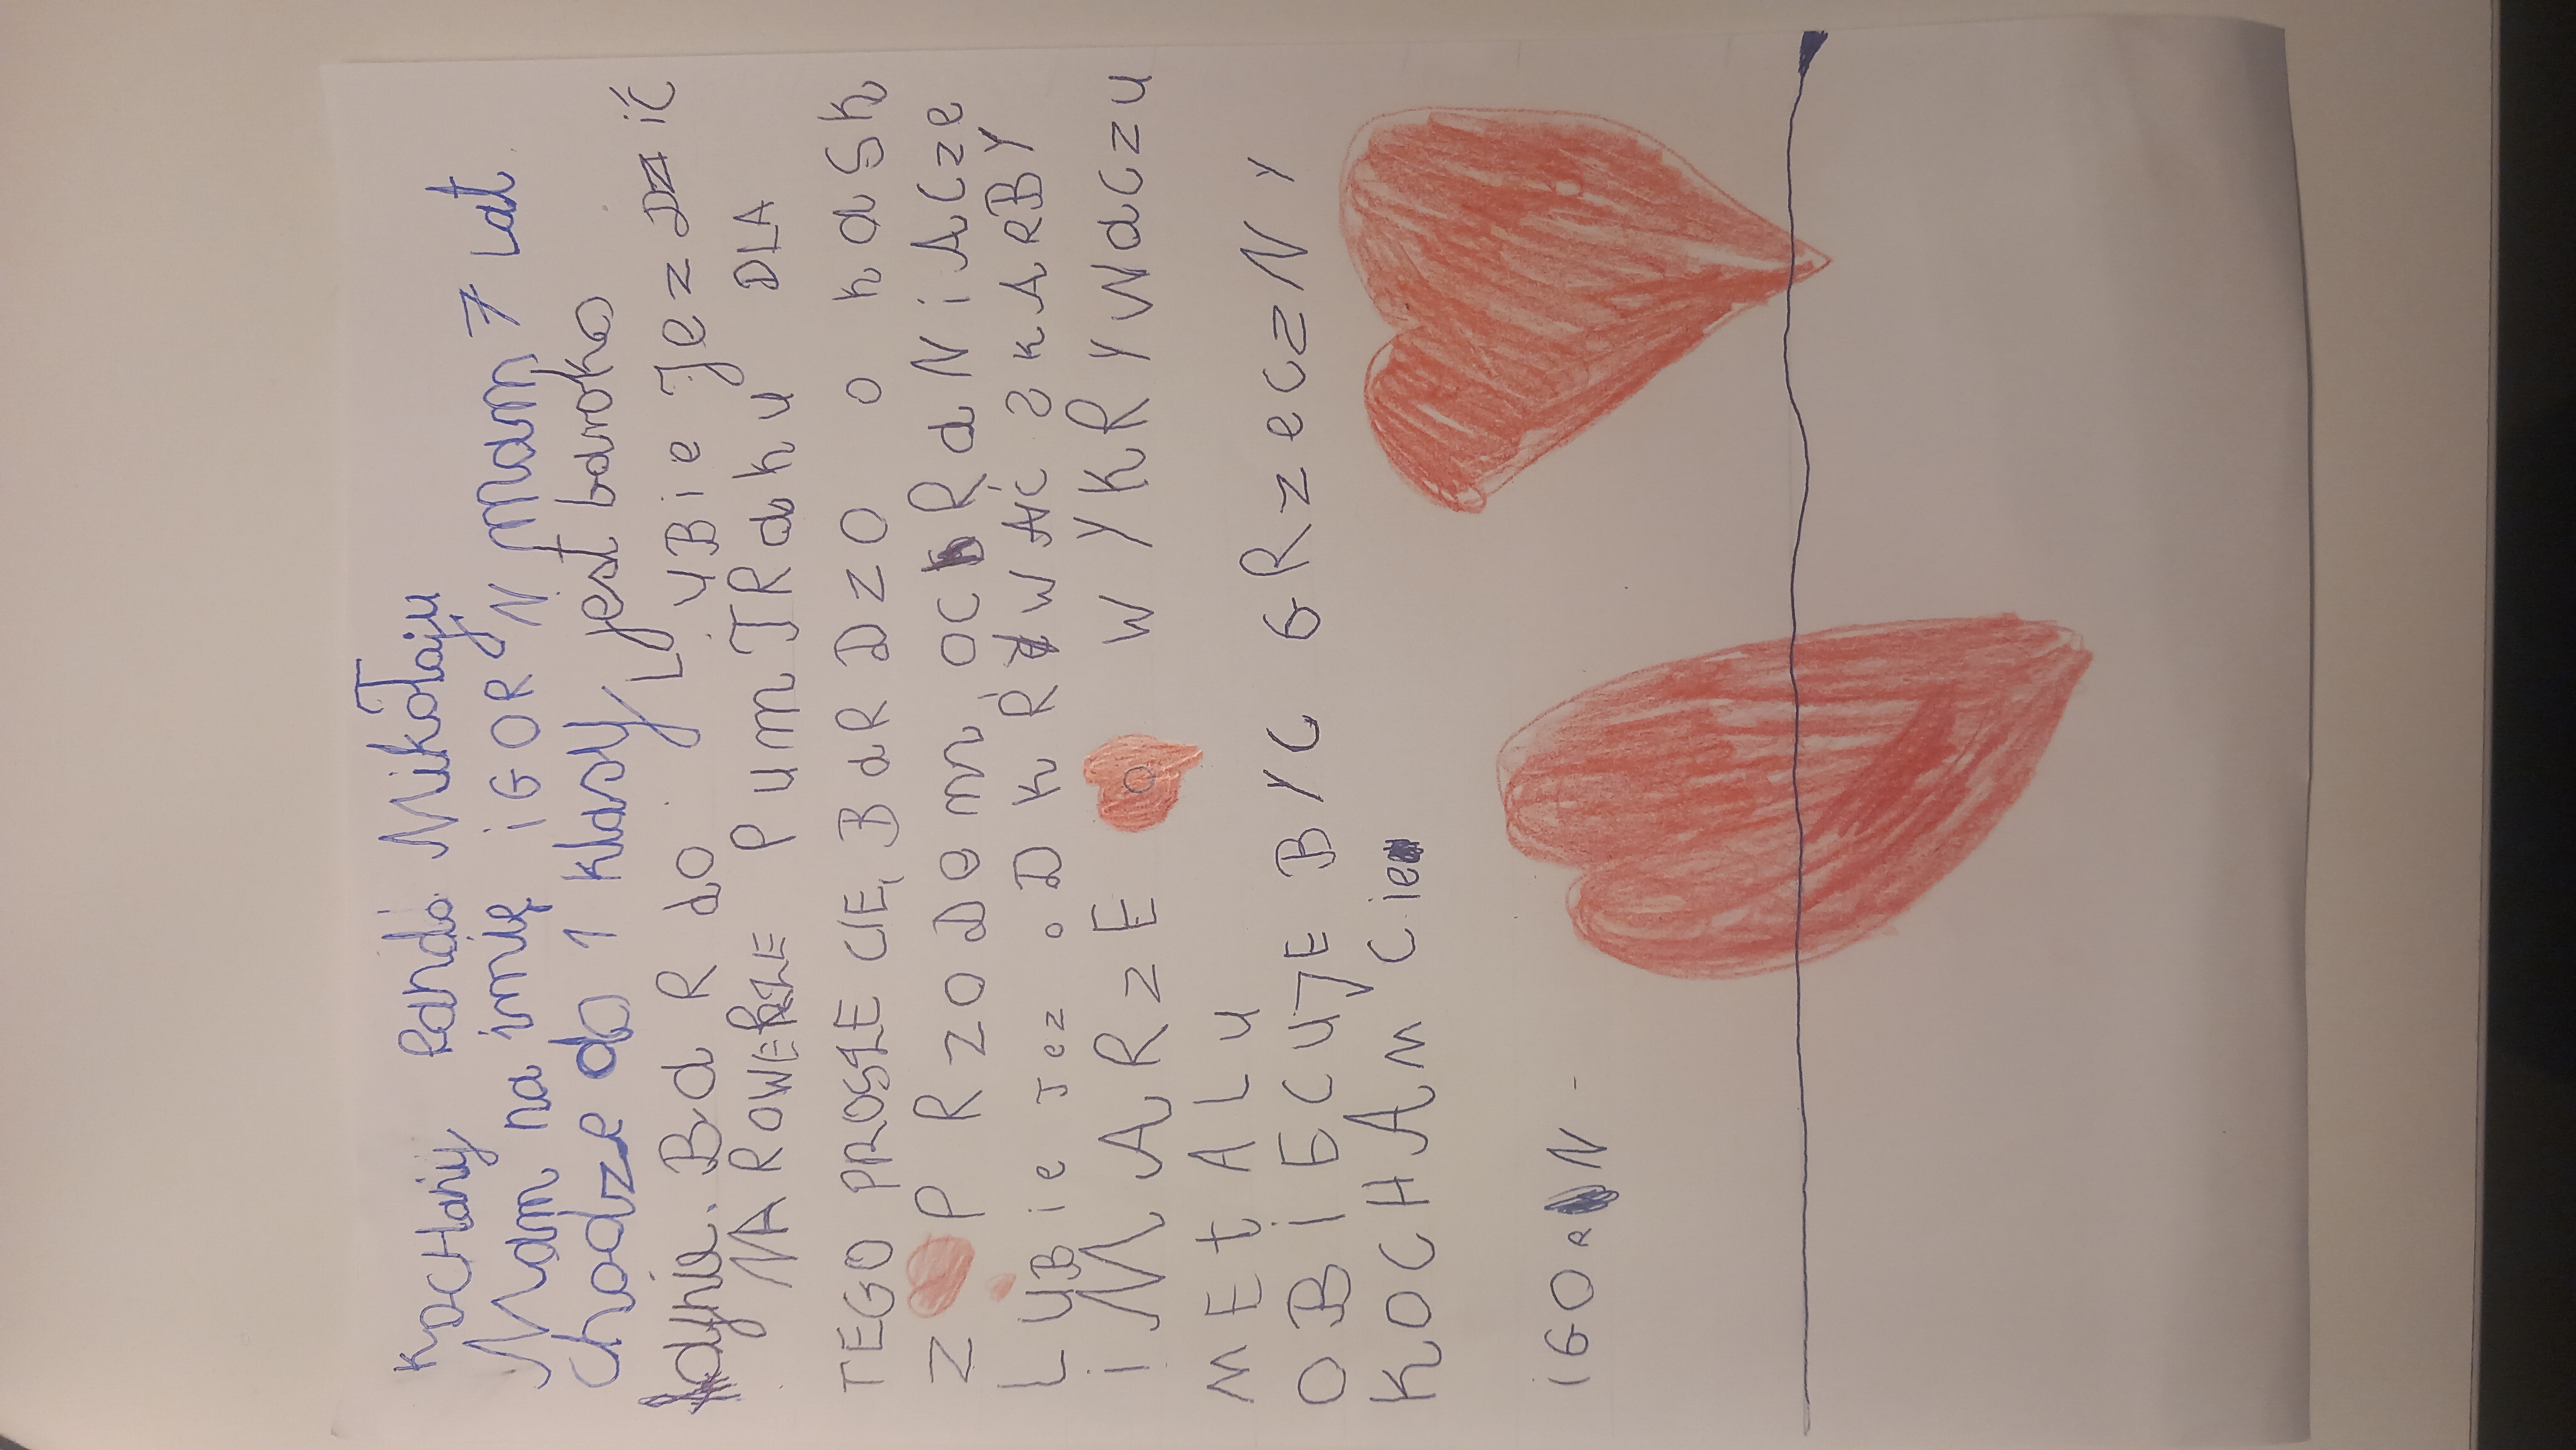 KOCHaniy Pandó Mikołaju
Mam na imię iGORN mam 7 Lat
chodze do 1 klasy jest baroko
ładjnie. BaRdo LUBie JezDzić
NA ROWERZE PumTRaku DLA
TEGO PROSZE CIE, BaRDZO o kask
Z PRZODem OCHRaNiACze
LUBie Jez oDkRYWAĆ SkARBY
i MARZE O WYKRYWaczu
METALU
OBiECUJE BYC GRzeczNY
KOCHAm Cie
iGORN